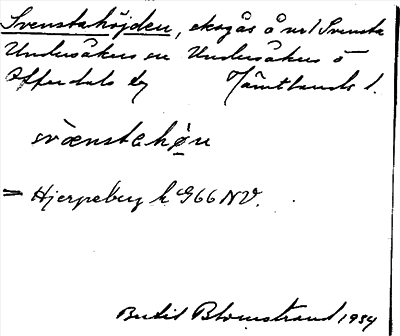 Svenstahöjden, skogås å nr 1 Svensta
Undersåkers sn Undersåkers o
Offerdals tg Jämtlands l.
svænstehøn
= Hjerpeberg k. G66 NV.
Bertil Blomstrand 1934